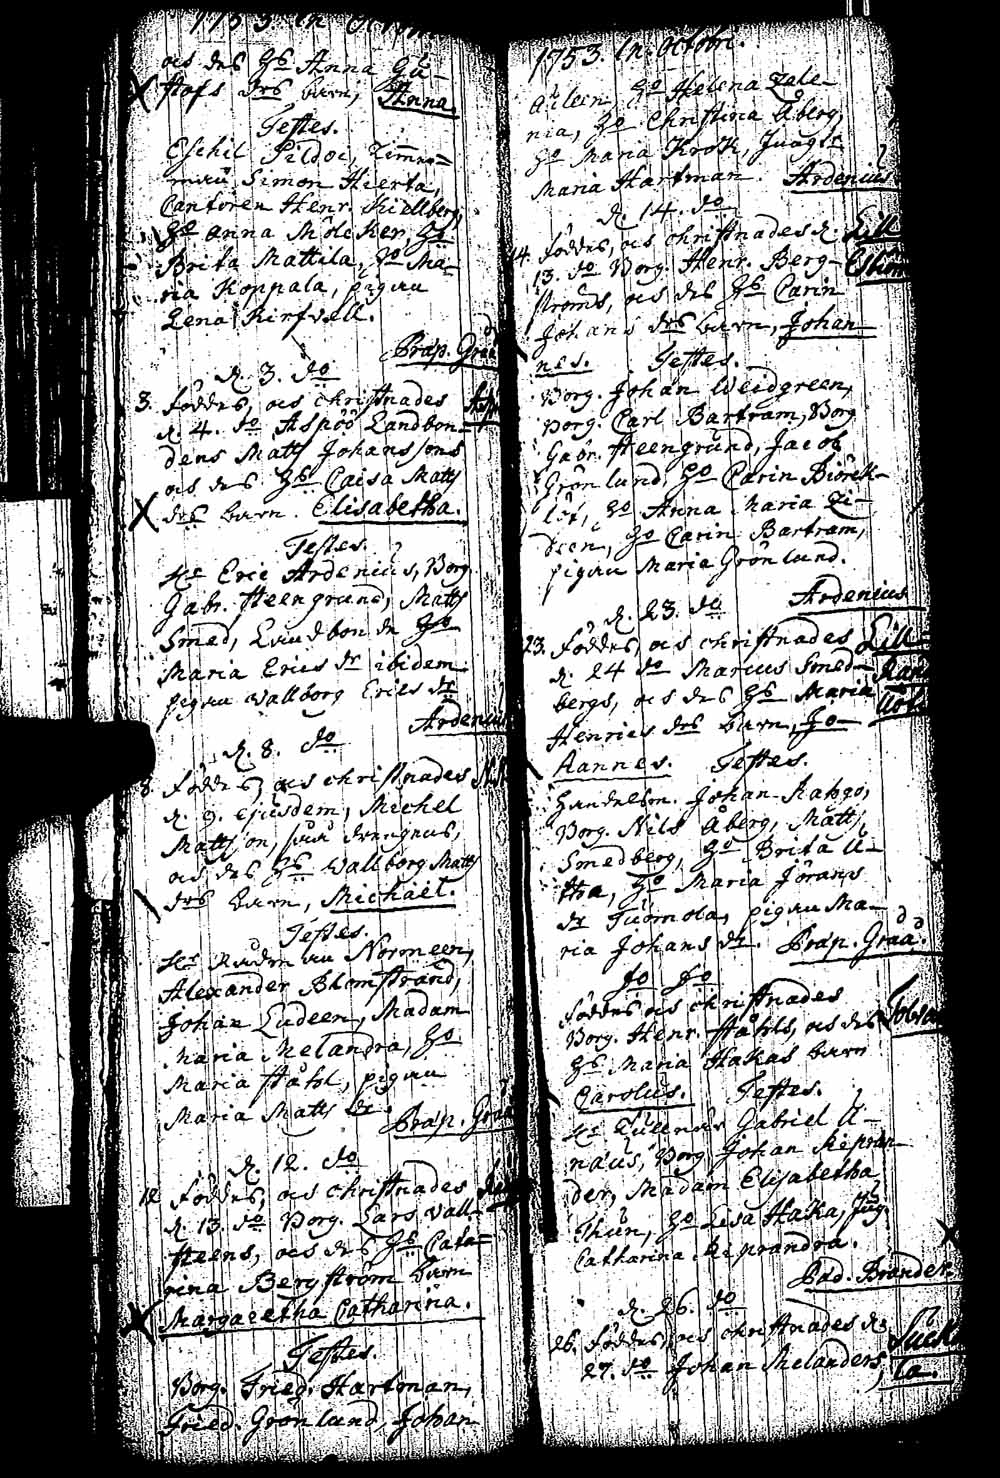 1753. In Octobr.
och des H6 Anna Gu-
stafs drs barn, Anna
Testes.
Eschil Pildoi, Zimmer=
man Simon Hierta,
Cantoren Henr. Kiellberg,
Ho Anna Mölcker, Ho
Brita Mattila, Ho Ma-
ria Koppala, pigan
Lena Kirfvell.
Præp. Graa
d. 3. do
3. föddes, och christnades
d. 4. do Aspöö Landbon-
dens Matts Johanssons
och des H6 Caisa Matts
drs barn. Elisabetha.
Testes.
Hr Eric Ardenius, Borg.
Gabr. Heengrund, Matts
Smed, Landbon d.
Maria Erics dr ibidem
pigan Wallborg Erics dr
Ardenius
d. 8. do
8. föddes, och christnades
d. 9. ejusdem, Michel
Mattsson, drängens,
och des H6 Wallborg Matts
drs barn, Michael.
Testes.
Hr Rådman Normeen,
Alexander Blomstrand,
Johan Ludeen, Madam
Maria Melandra, Ho
Maria Ståhl, pigan
Maria Matts dr.
Præp. Graa
d. 12. do
12. föddes, och christnades
d. 13. do Borg. Lars Wall-
steens, och des H6 Catha-
rina Bergström barn
Margaretha Catharina.
Testes.
Borg. Fried. Hartman,
Fried. Grönlund, Johan
1753. In Octobr.
Ho Helena Zale-
nia, Ho Christina Åberg,
Ho Maria Krok, Jungfr
Maria Hartman. Ardenius
d. 14. do
14. föddes, och christnades d. Lill
15. do Borg. Henr. Berg-
ströms, och des H6 Carin
Johans drs barn, Johan
nes. Testes.
Borg. Johan Weidgreen,
Borg. Carl Bartram, Borg
Gabr. Heengrund, Jacob
Grönlund, Ho Carin Biörk-
löf, Ho Anna Maria Zi-
deen, Ho Carin Bartram,
pigan Maria Grönlund.
Ardenius
d. 23. do
23. föddes, och christnades Lill-
d. 24 do Marcus Smed-
bergs, och des H6 Maria
Henrics drs barn, Jo-
hannes. Testes.
Handelsm. Johan Kahgo,
Borg. Nils Åberg, Matts
Smedberg, Ho Brita U-
tha, Ho Maria Jörans
dr Tuomola, pigan Ma-
ria Johans dr. Præp. Graa.
do do
föddes och christnades
Borg. Henr. Ståhls, och des
H6 Maria Hakas barn
Carolus. Testes.
Hr Gabriel U-
næus, Borg. Johan Kepran-
der, Madam Elisabetha
Thun, Ho Lisa Haka, Jug.
Catharina Keprandra.
Pæd. Brander.
d. 26. do
26. föddes, och christnades d.
27. do Johan Melanders,